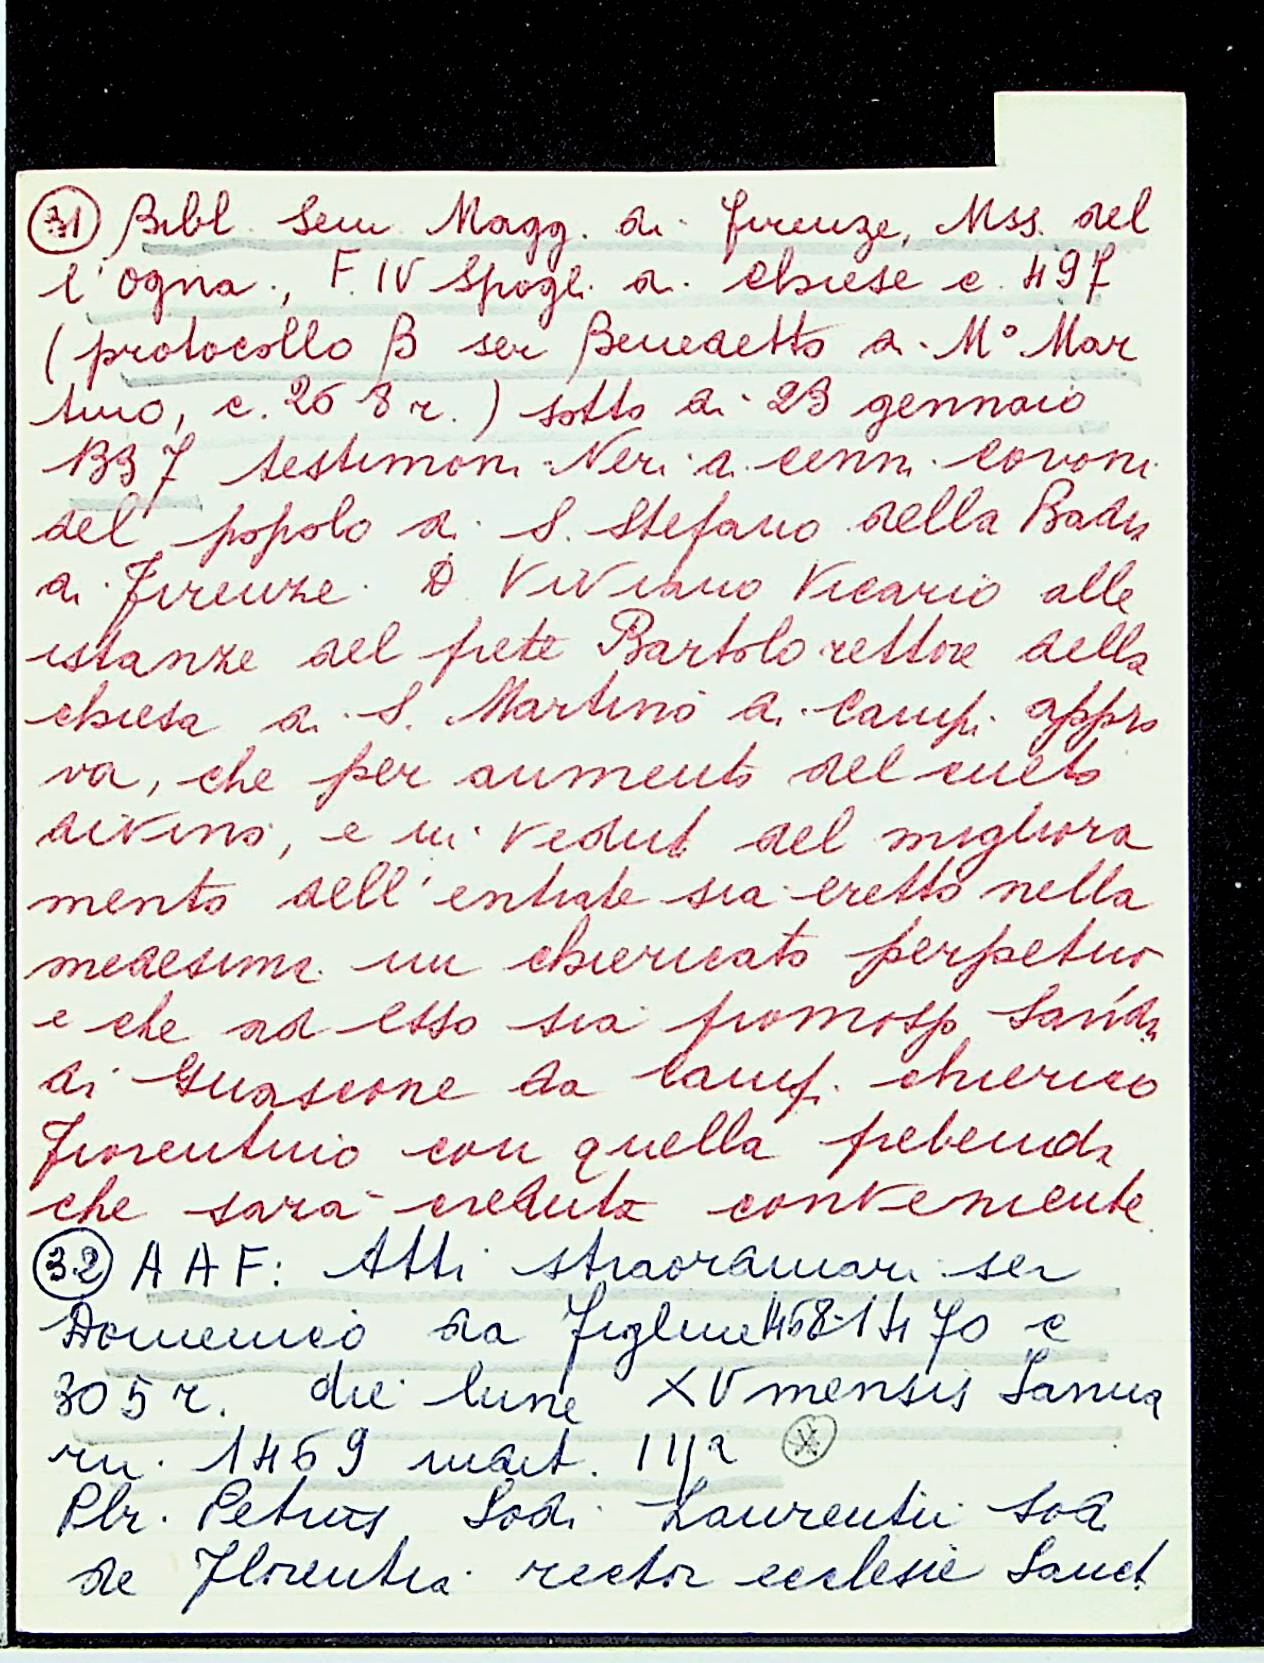 (31) Bibl. Sem. Magg. di Firenze, Mss. del
l'Ogna, F. IV Spogli di chiese c. 497
(protocollo B ser Benedetto di M° Mar
tino, c. 268 r.) sotto di 23 gennaio
1337 testimoni Neri di cenni Covoni
del popolo di S. Stefano della Badia
di Firenze. D. Viviano Vicario alle
istanze del prete Bartolo rettore della
chiesa di S. Martino a Campi appro
va, che per aumento del culto
divino, e in veduta del migliora
mento dell'entrate sia eretto nella
medesima un chiericato perpetuo
e che ad esso sia promosso Sandro
di Guascone da Campi chierico
fiorentino con quella prebenda
che sarà creduta conveniente
(32) A A F: Atti straordinari ser
Domenico da Figline 1468-1470 c
305 r. die lune XV mensis Janua
rii 1469 indict. III^a
Pbr. Petrus Lodi Laurentii Lodi
de Florentia rector ecclesie Sancti